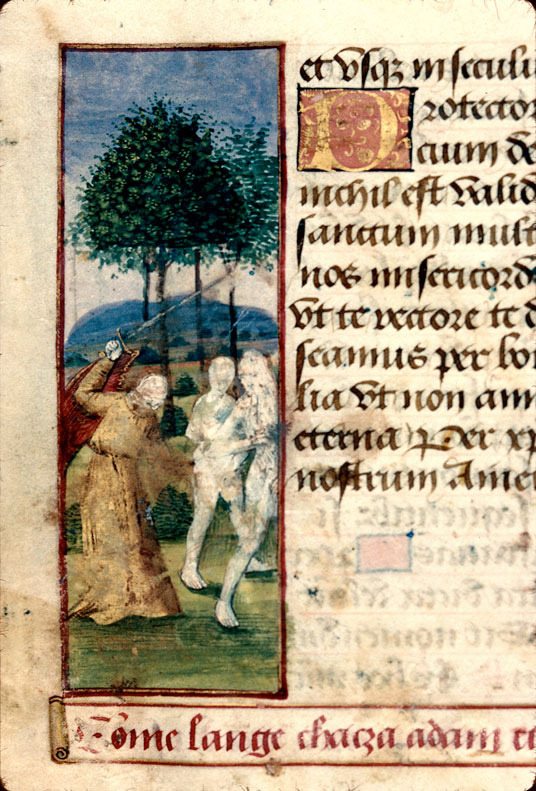 et vsq3 in seculu
Protector
cium de
nichil est valid
sanctum mult
nos misericord
vt te rectore te d
seamus per bo
lia vt non ami
eterna Per xp
nostrum Amen
Cōme lange chaça adam et